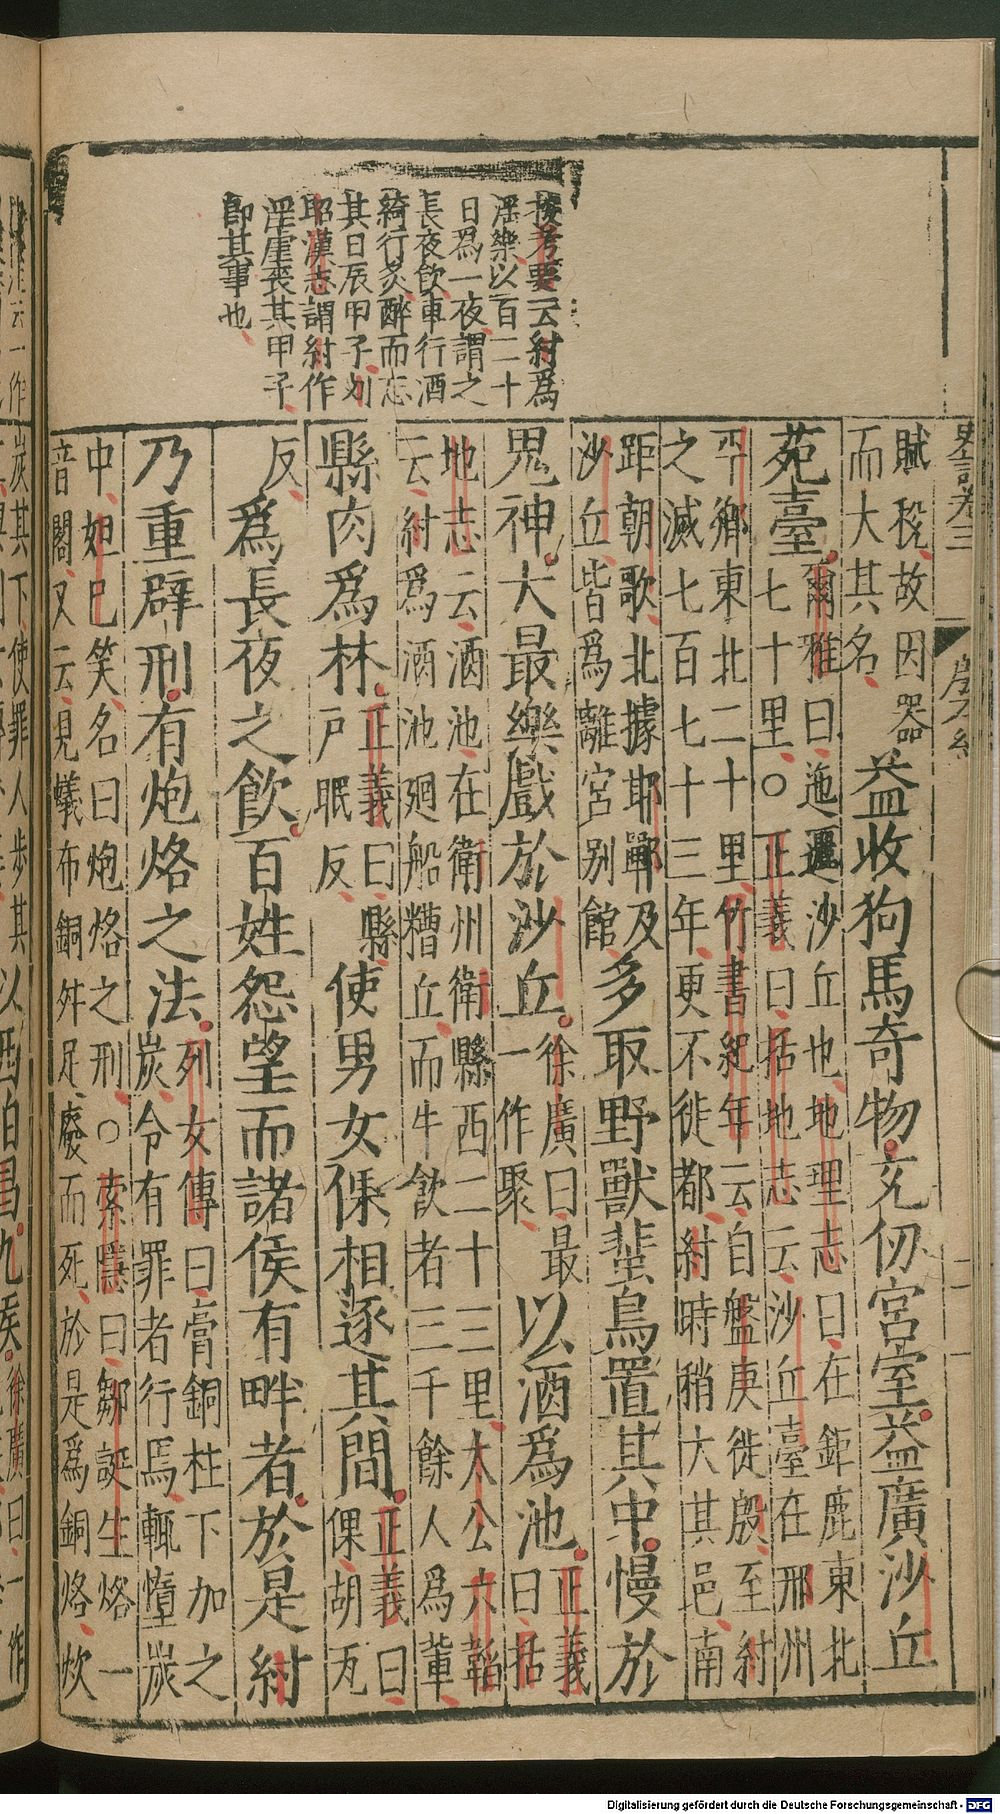 按考要云紂爲
淫樂以百二十
日爲一夜謂之
長夜飲車行酒
綺行炙醉而忘
其日辰甲子
耶漢志謂紂作
淫虐喪其甲子
即其事也
史記卷三
殷本紀
二一
賦稅故因器
而大其名
益收狗馬奇物充仞宮室益廣沙丘
苑臺
爾雅曰迤邐沙丘也地理志曰在鉅鹿東北
七十里○正義曰括地志云沙丘臺在邢州
平鄉東北二十里竹書紀年云自盤庚徙殷至紂
之滅七百七十三年更不徙都紂時稍大其邑南
距朝歌北據邯鄲及
沙丘皆爲離宮别館
多取野獸蜚鳥置其中慢於
鬼神大最樂戲於沙丘
徐廣曰最
一作聚
以酒爲池
正義
曰括
地志云酒池在衛州衛縣西二十三里太公六韜
云紂爲酒池廻船糟丘而牛飲者三千餘人爲輩
縣肉爲林
正義曰縣
戸眠反
使男女倮相逐其間
正義曰
倮胡瓦
反
爲長夜之飲百姓怨望而諸侯有畔者於是紂
乃重辟刑有炮烙之法
列女傳曰膏銅柱下加之
炭令有罪者行焉輒墮炭
中妲己笑名曰炮烙之刑○索隱曰鄒誕生烙一
音閣又云見蟻布銅斗足廢而死於是爲銅烙炊
Digitalisierung gefördert durch die Deutsche Forschungsgemeinschaft - DFG